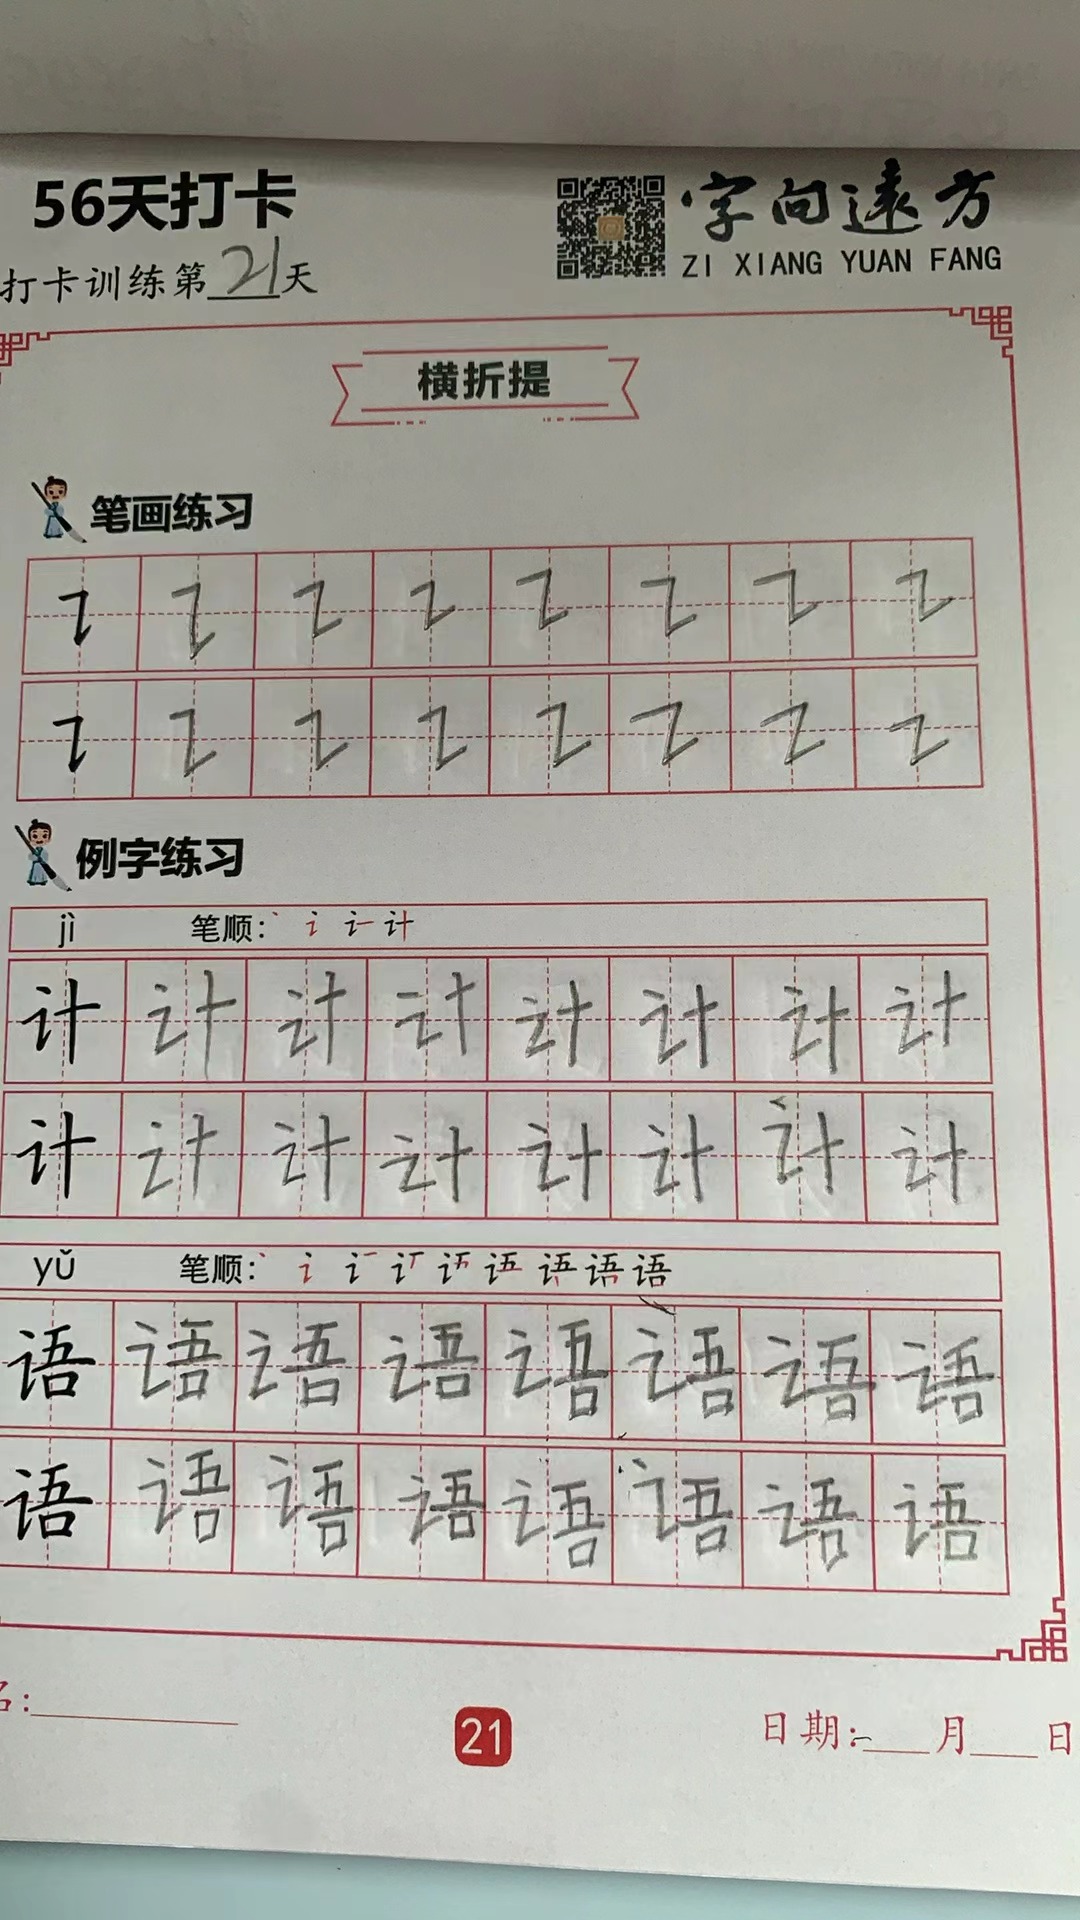 56天打卡
字向遠方
ZI XIANG YUAN FANG
打卡训练第21天
横折提
笔画练习
例字练习
jì 笔顺: 丶 讠 讠一 计
计 计 计 计 计 计 计 计
计 计 计 计 计 计 计 计
yǔ 笔顺:
语 语 语 语 语 语 语 语
语 语 语 语 语 语 语 语
名:
21
日期: 月 日